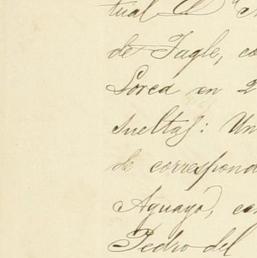 tual El
de Tagle, co
Lorca en 2
sueltas: Un
de correspond
Aguayo, con
Pedro del